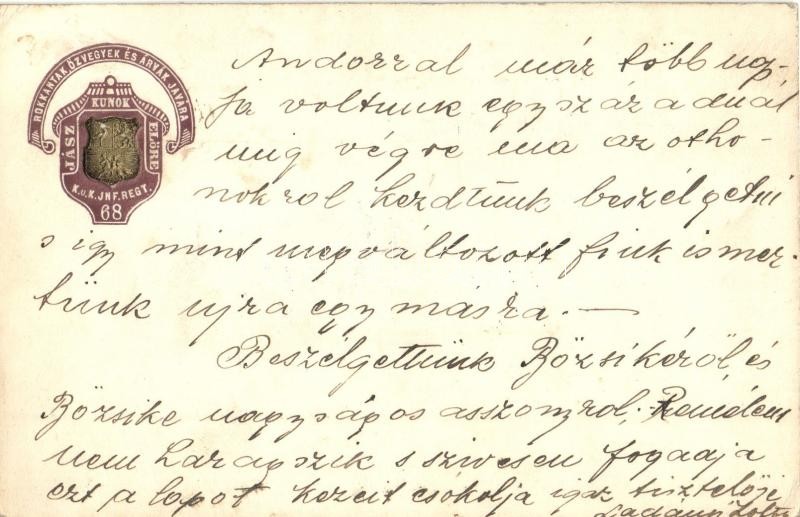 ROKKANTAK ÖZVEGYEK ÉS ÁRVÁK JAVÁRA
JÁSZ KUNOK ELŐRE
K.u.K. JNF. REGT.
68
Andorral már több nap-
ja voltunk egy századnál
mig végre ma az otho-
nokrol kezdtünk beszélgetni
s igy mint megváltozott fiuk ismer-
tünk ujra egymásra. —
Beszélgettünk Bözsikéről és
Bözsike nagyságos asszonyrol. Remélem
nem haragszik s szivesen fogadja
ezt a lapot kezeit csókolja igaz tisztelője
Ladányi